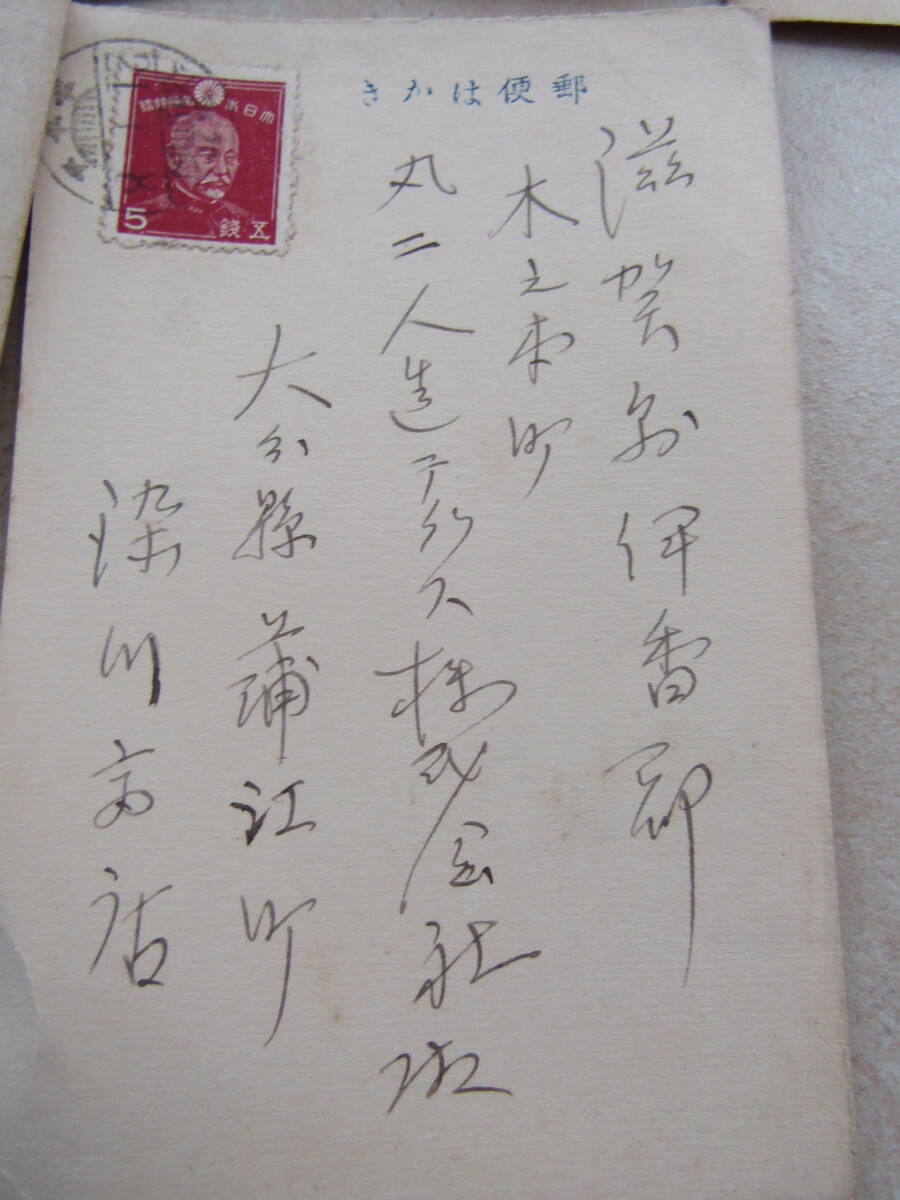 郵便はかき
大日本帝國郵便
5 五錢
滋賀縣伊香郡
木之本町
丸二人造テグス株式会社
大分縣蒲江町
染川商店